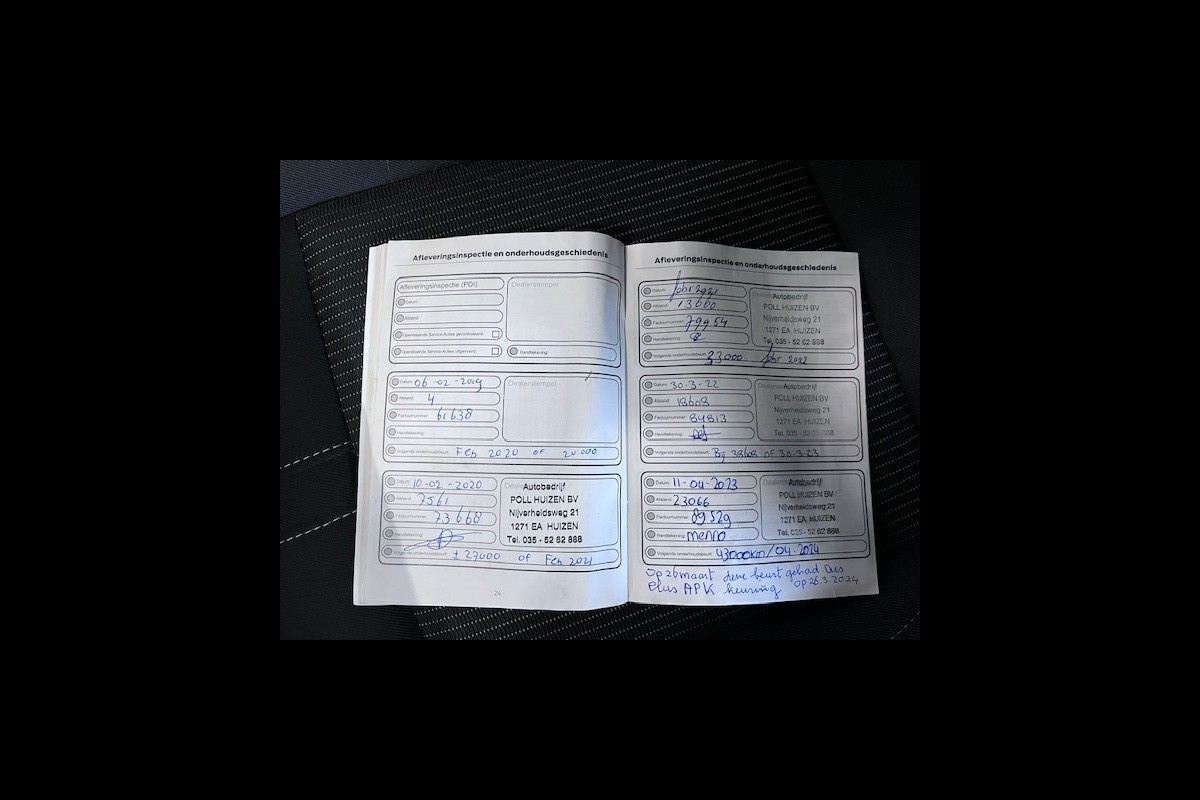 Afleveringsinspectie en onderhoudsgeschiedenis
Afleveringsinspectie (PDI)
Dealerstempel
Datum:
Afstand:
Openstaande Service-Acties gecontroleerd:
Openstaande Service-Acties uitgevoerd:
Handtekening:
Datum: 06-02-2019
Dealerstempel
Afstand: 4
Factuurnummer: 61638
Handtekening:
Volgende onderhoudsbeurt: Feb 2020 of 20.000
Datum: 10-02-2020
Autobedrijf
Afstand: 7561
POLL HUIZEN BV
Factuurnummer: 73668
Nijverheidsweg 21
Handtekening:
1271 EA HUIZEN
Tel. 035 - 52 62 888
Volgende onderhoudsbeurt: ± 27000 of Feb 2021
24
Afleveringsinspectie en onderhoudsgeschiedenis
Datum: febr 2021
Autobedrijf
Afstand: 13660
POLL HUIZEN BV
Factuurnummer: 79954
Nijverheidsweg 21
Handtekening:
1271 EA HUIZEN
Tel. 035 - 52 62 888
Volgende onderhoudsbeurt: 33000 febr 2022
Datum: 30-3-22
Autobedrijf
Afstand: 18608
POLL HUIZEN BV
Factuurnummer: 84813
Nijverheidsweg 21
Handtekening:
1271 EA HUIZEN
Tel. 035 - 52 62 888
Volgende onderhoudsbeurt: Bij 38608 of 30-3-23
Datum: 11-04-2023
Autobedrijf
Afstand: 23066
POLL HUIZEN BV
Factuurnummer: 89529
Nijverheidsweg 21
Handtekening: menno
1271 EA HUIZEN
Tel. 035 - 52 62 888
Volgende onderhoudsbeurt: 43000km/04-2024
Op 26 maart deze beurt gehad. Dus
Plus APK keuring op 26.3.2024